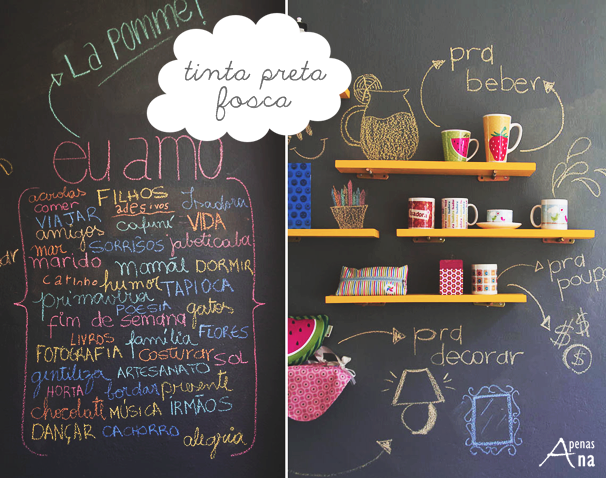 La pomme!
tinta preta
fosca
eu amo
acerolas
comer
FILHOS
adesivos
Isadora
VIAJAR
amigos
cafuné
VIDA
mar
SORRISOS
jaboticaba
marido
mamãe
DORMIR
carinho
humor
TAPIOCA
primavera
POESIA
gatos
fim de semana
FLORES
LIVROS
família
FOTOGRAFIA
costurar
sol
gentileza
ARTESANATO
HORTA
bordar
presente
chocolate
MÚSICA
IRMÃOS
DANÇAR
CACHORRO
alegria
pra
beber
pra
poupa
$ $
$
pra
decorar
Apenas
Ana